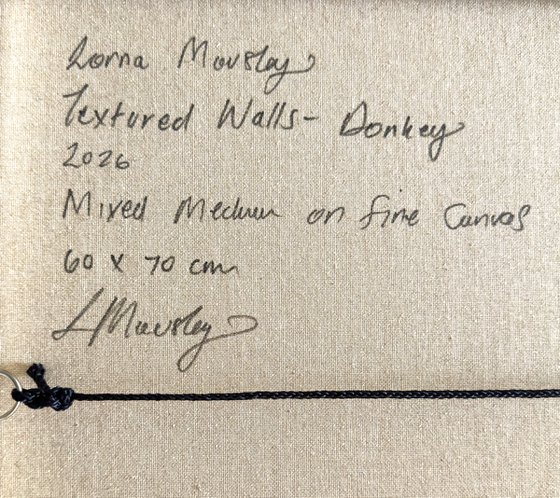 Lorna Mousley
Textured Walls - Donkey
2026
Mixed Medium on fine Canvas
60 x 70 cm
L Mousley